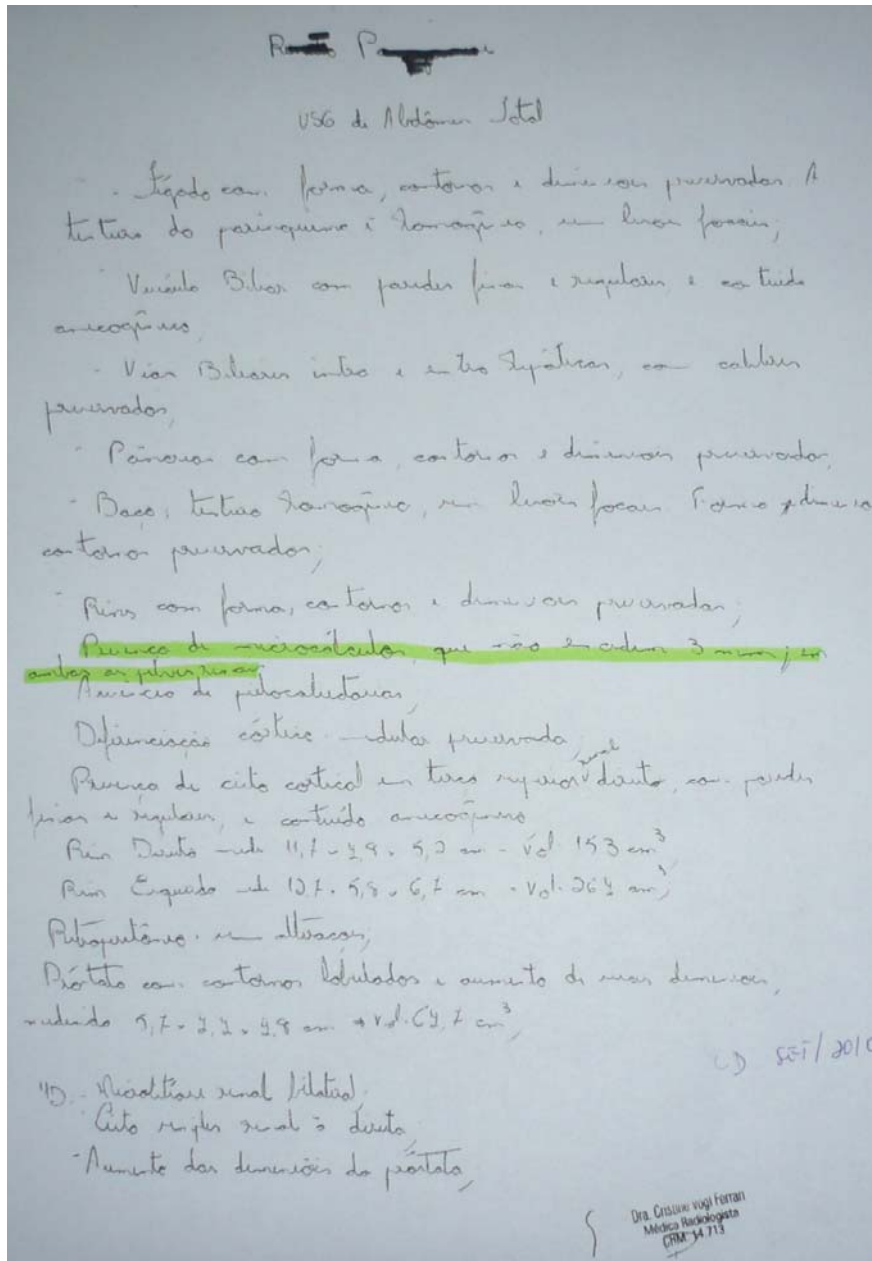 USG de Abdômen Total
- Fígado com forma, contornos e dimensões preservados. A
textura do parênquima é homogênea, sem lesões focais;
- Vesícula Biliar com paredes finas e regulares e conteúdo
anecogênico
- Vias Biliares intra e extra hepáticas, com calibres
preservados,
- Pâncreas com forma, contornos e dimensões preservados,
- Baço, textura homogênea, sem lesões focais. Forma
contornos preservados;
- Rins com forma, contornos e dimensões preservadas;
Presença de microcálculos, que não excedem 3 mm, em
ambas as pelves renais
Ausência de
Diferenciação córtico-medular preservada,
Presença de cisto cortical em terço superior renal direito, com paredes
finas e regulares, e conteúdo anecogênico
Rim Direito mede 5,2 cm - Vol. 153 cm³
Rim Esquerdo mede cm - Vol. cm³
Retroperitôneo sem alterações,
Próstata com contornos lobulados e aumento de suas dimensões,
medindo cm
SET/
- Microlitíase renal bilateral,
- Cisto simples renal à direita,
- Aumento das dimensões da próstata,
Dra. Ferrari
Médica Radiologista
CRM: 14 713